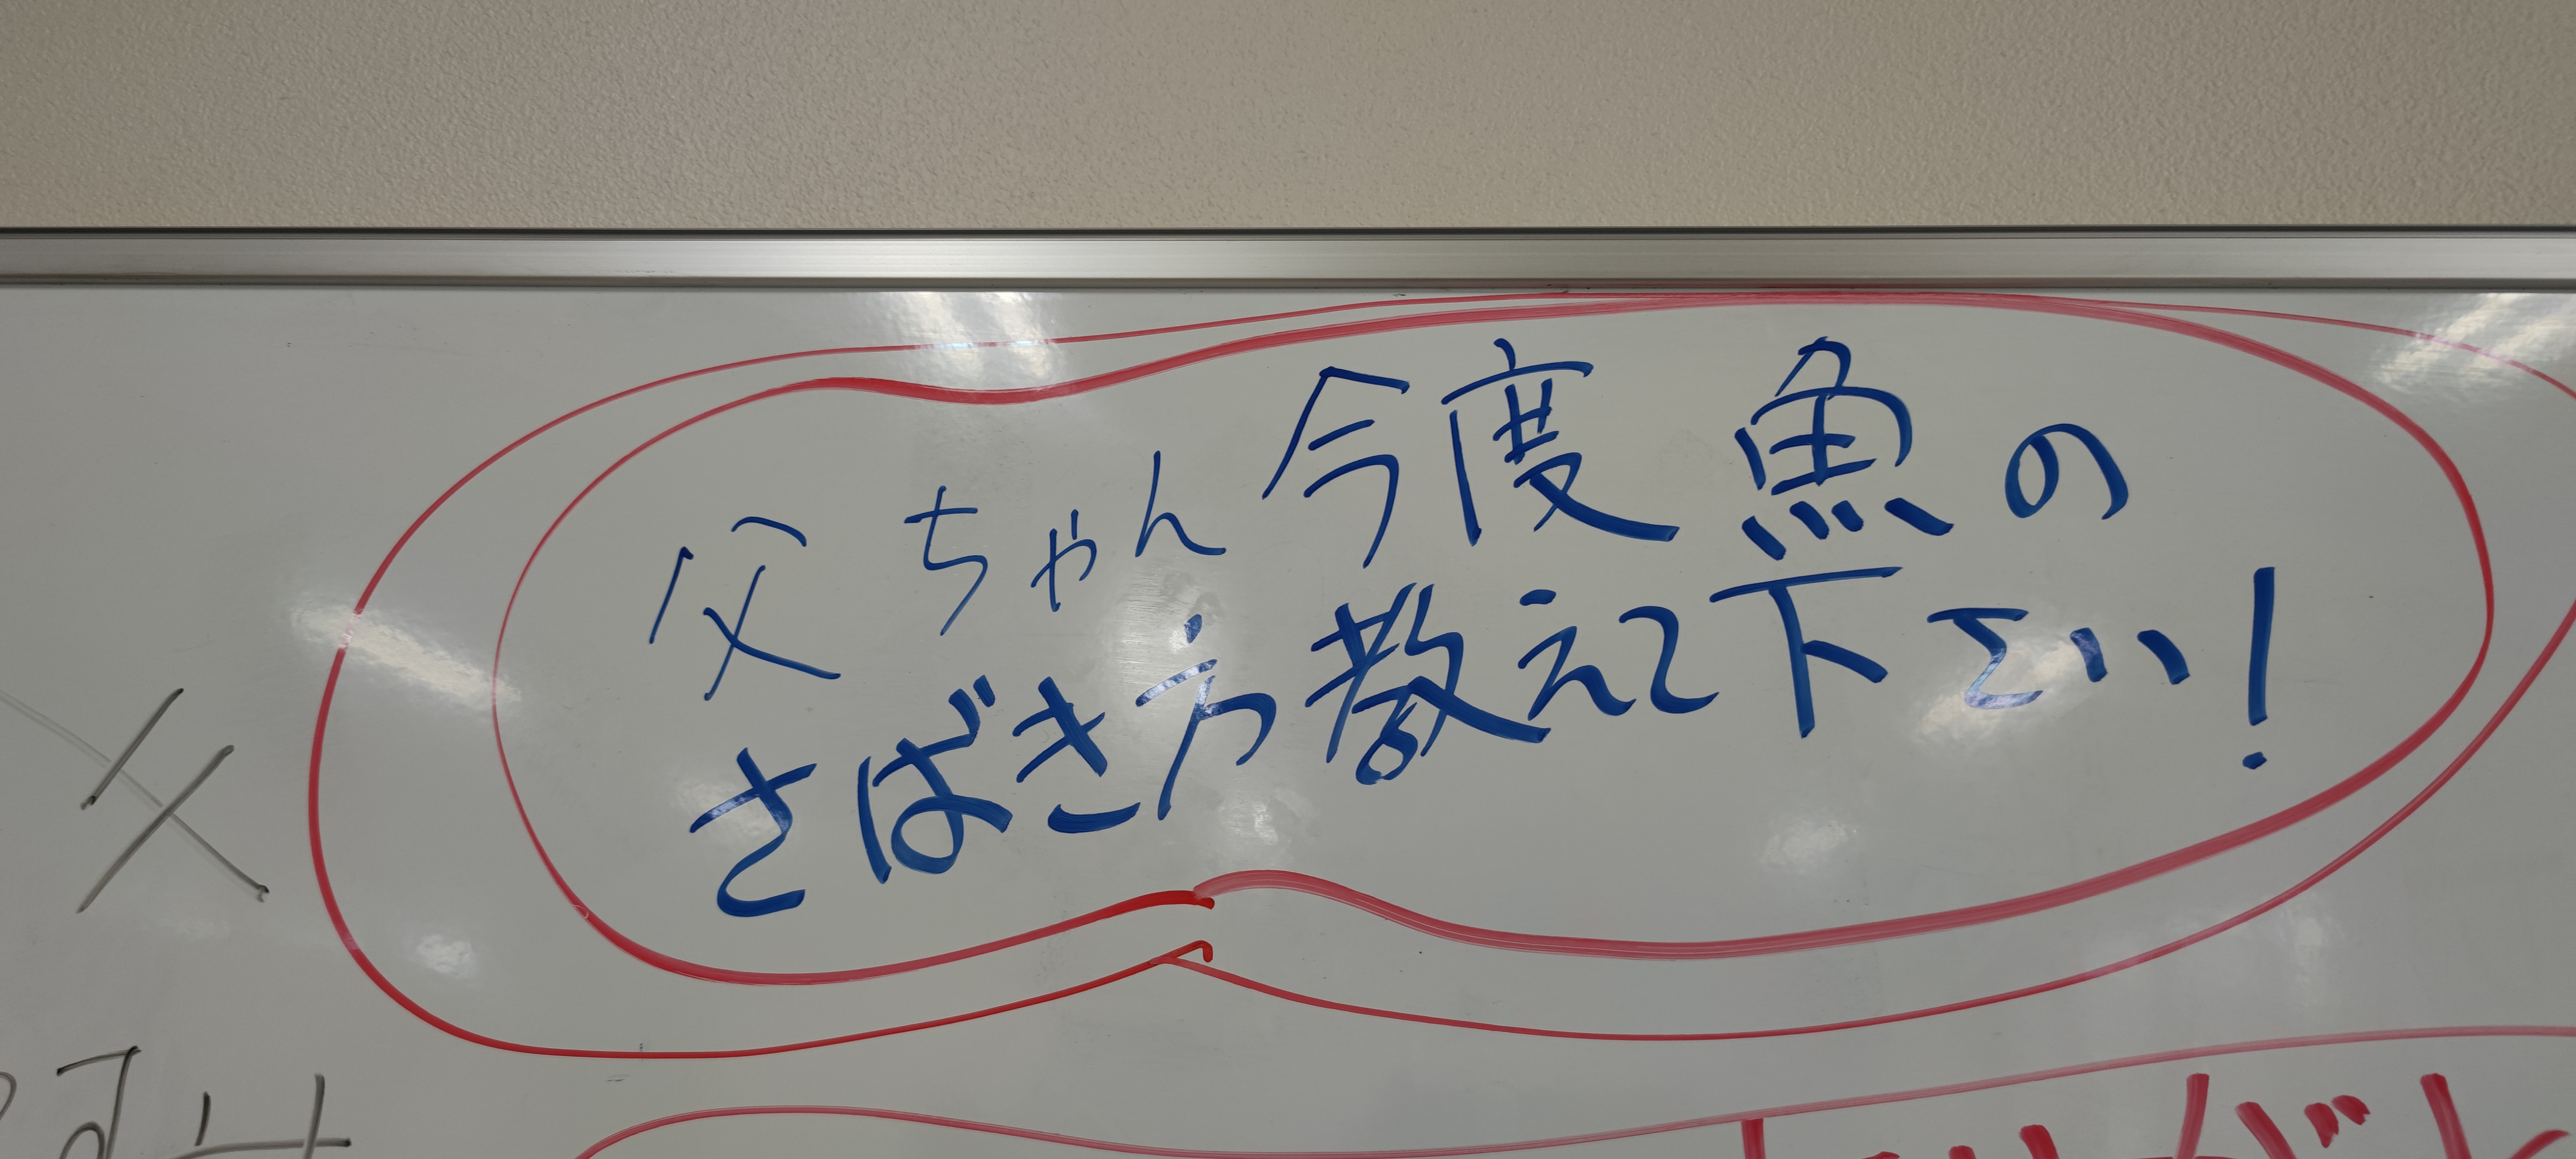 父ちゃん今度魚の
さばき方教えて下さい!